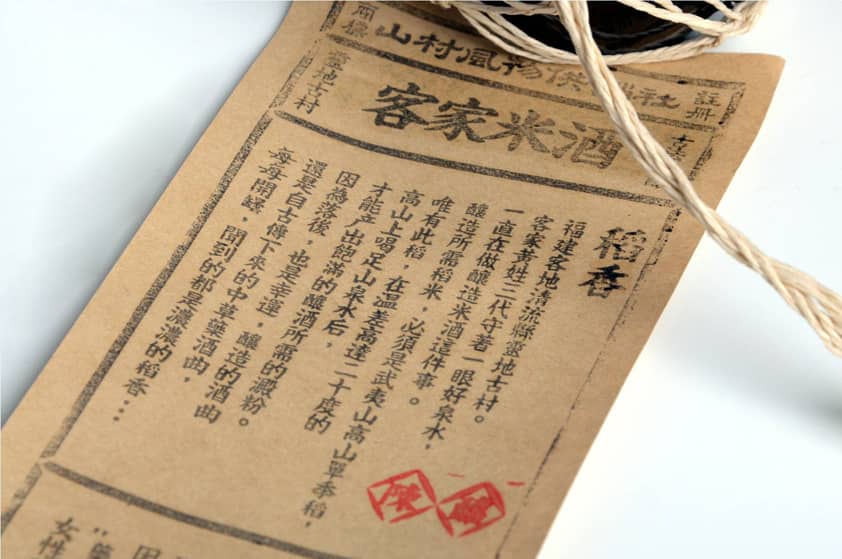 商標
山村風物供銷社
註冊
靈地古村
客家米酒
稻香
福建客地清流縣靈地古村。
客家黃姓三代守着一眼好泉水，
一直在做釀造米酒這件事。
釀造所需稻米，必須是武夷山高山單季稻，
唯有此稻，在溫差高達二十度的
高山上喝足山泉水后，
才能产出飽滿的釀酒所需的澱粉。
因為落後，也是幸運，釀造的酒曲
還是自古傳下來的中草藥酒曲，
每每開罈，聞到的都是濃濃的稻香…
因
"藥
女性